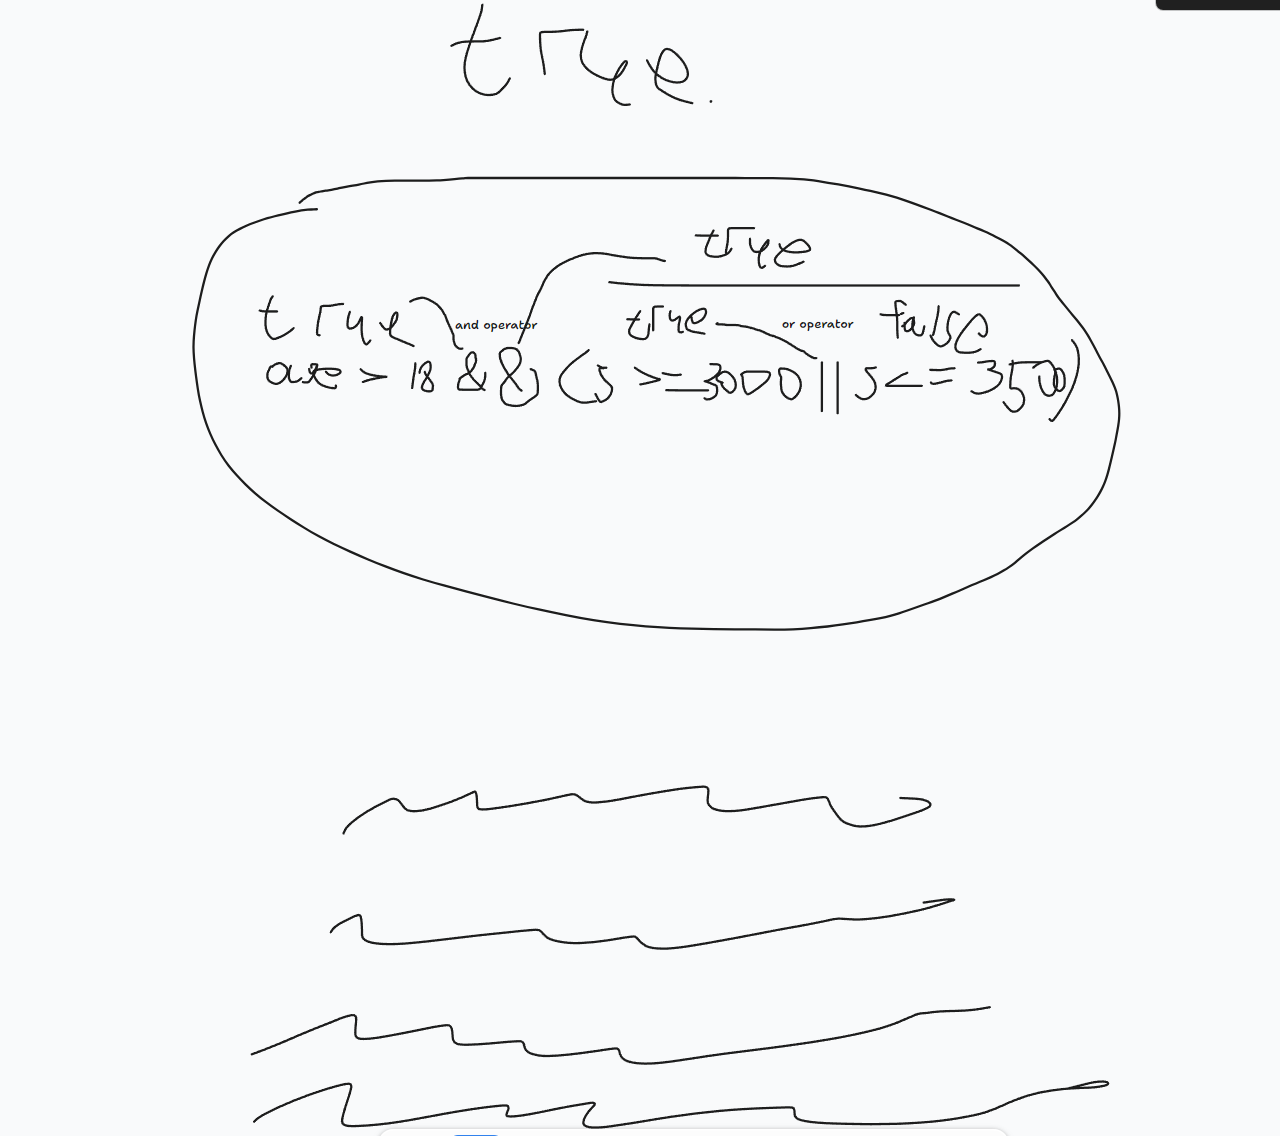 true.
true
true and operator true or operator false
age > 18 && (s >= 3000 || s <= 350)